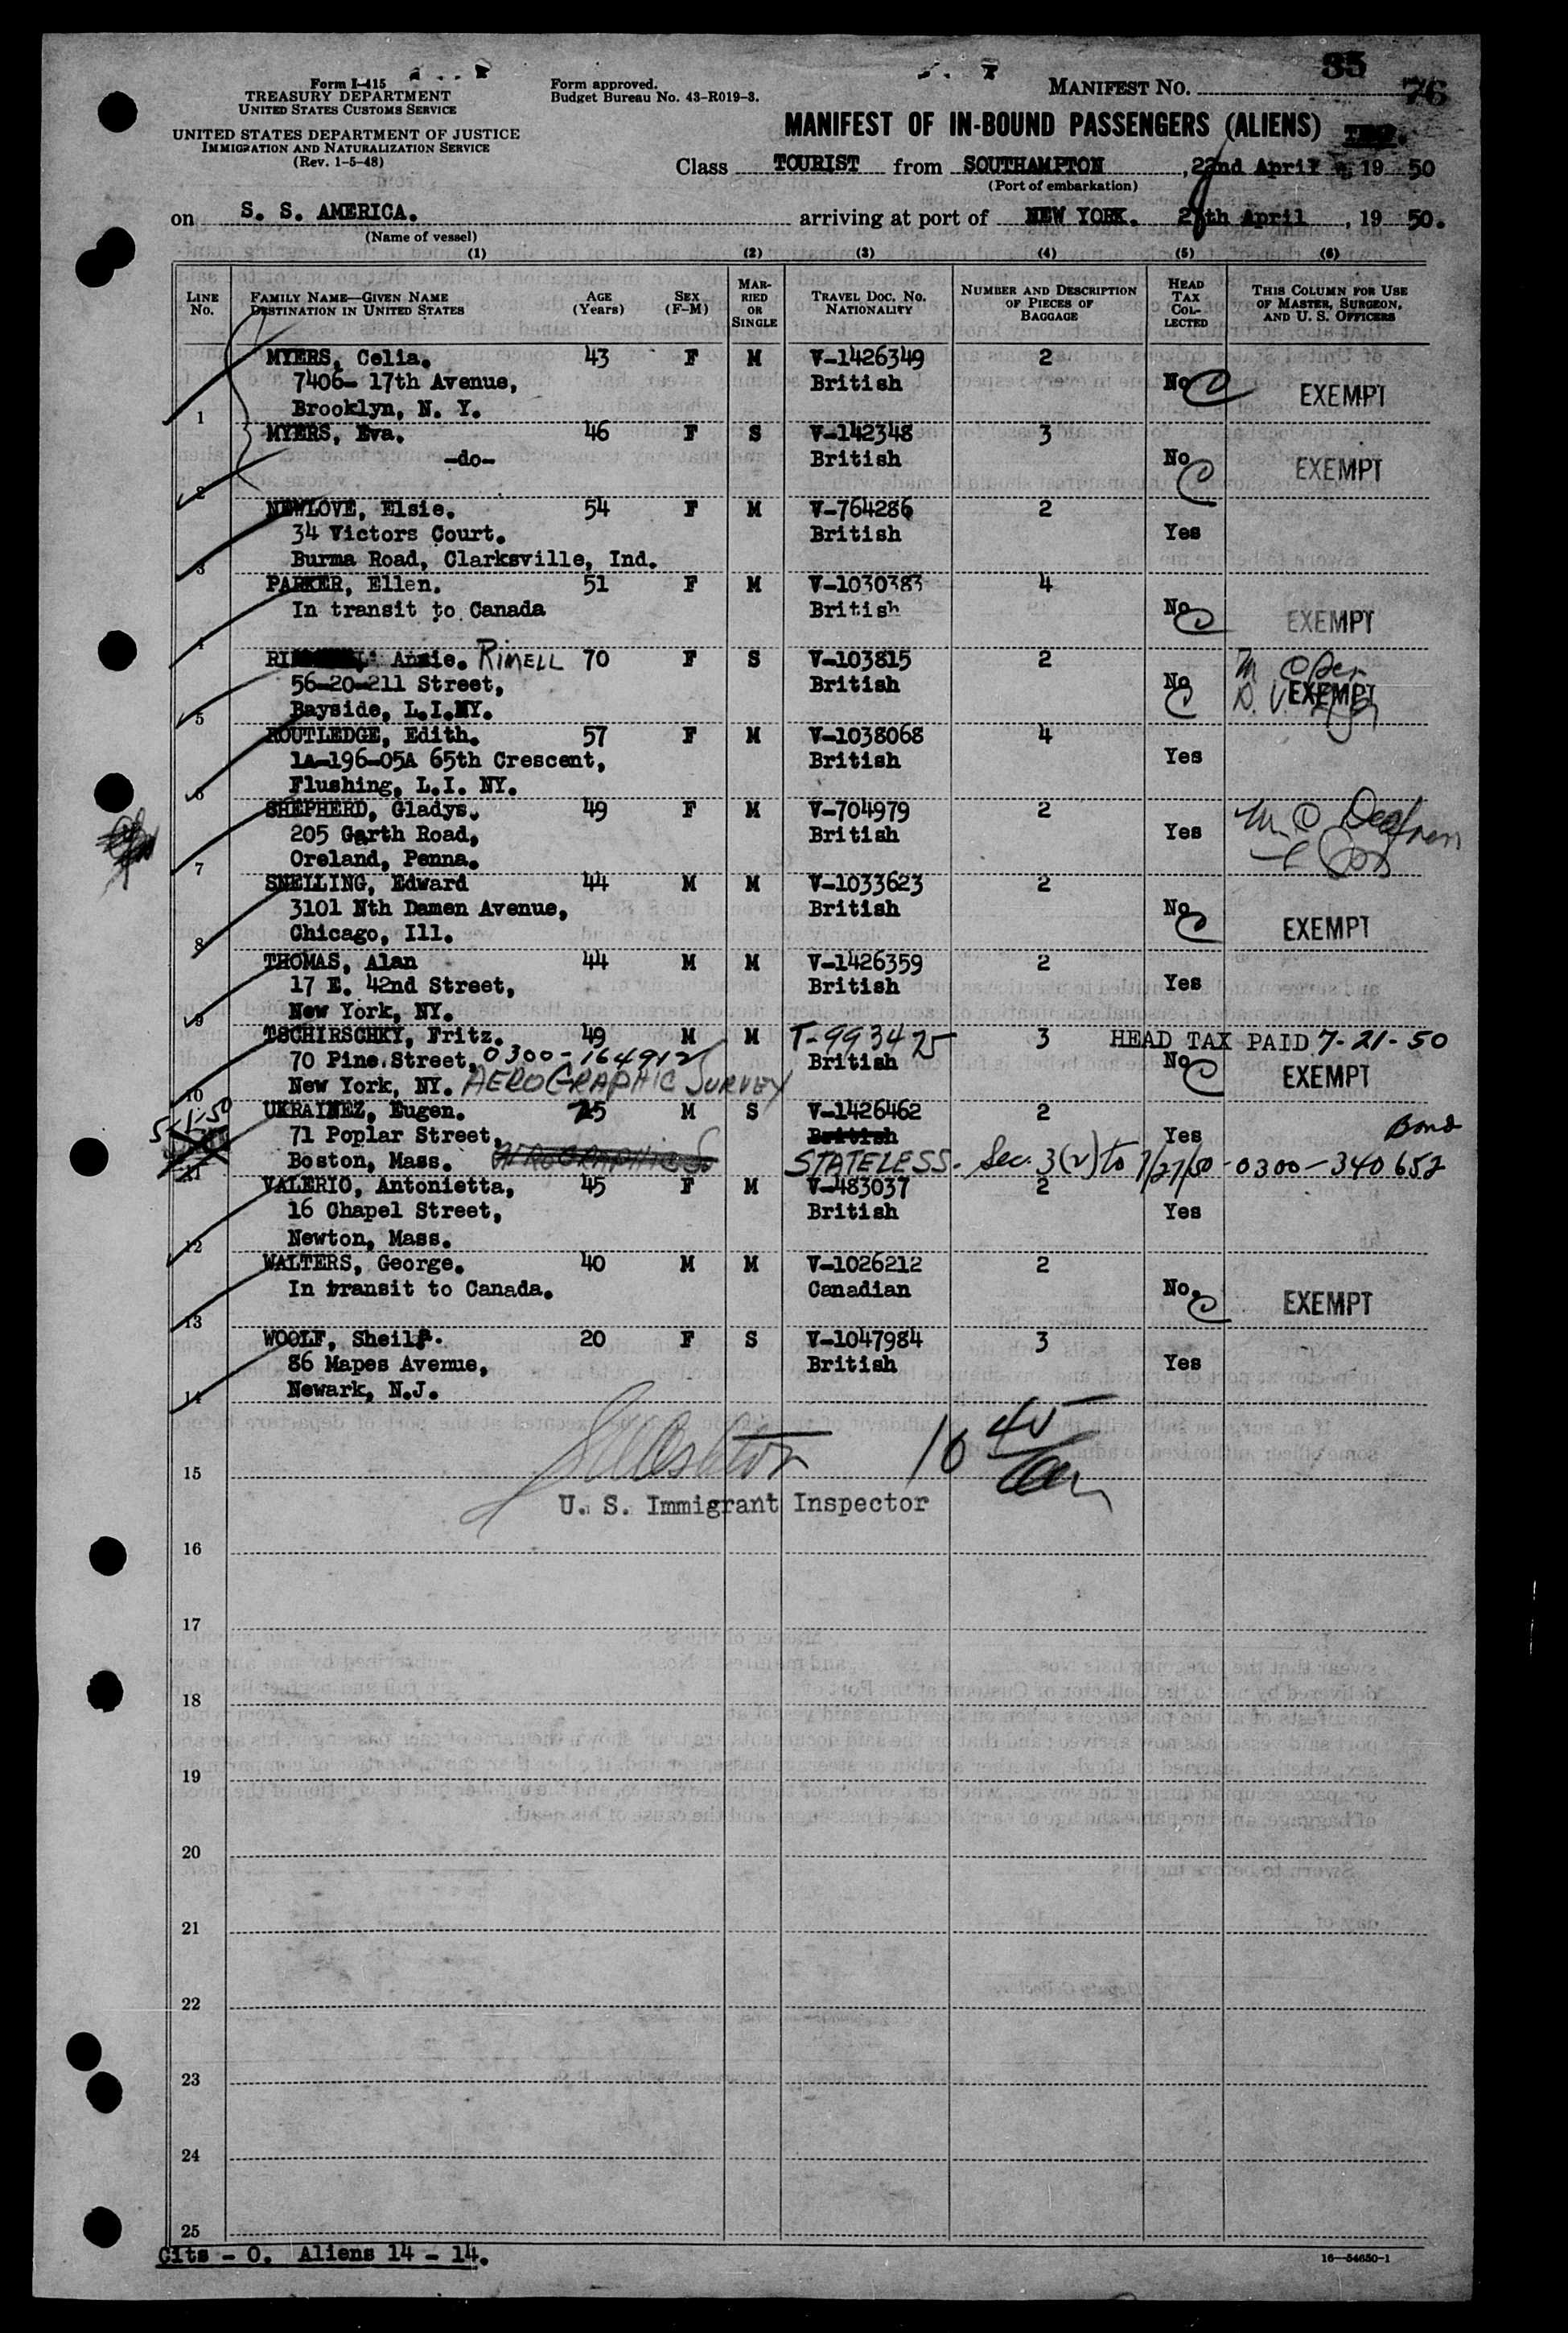 35
76
Form I-415
TREASURY DEPARTMENT
UNITED STATES CUSTOMS SERVICE
UNITED STATES DEPARTMENT OF JUSTICE
IMMIGRATION AND NATURALIZATION SERVICE
(Rev. 1-5-48)
Form approved.
Budget Bureau No. 43-R019-3.
MANIFEST NO.
MANIFEST OF IN-BOUND PASSENGERS (ALIENS)
Class TOURIST from SOUTHAMPTON, 22nd April, 19 50
(Port of embarkation)
on S. S. AMERICA. arriving at port of NEW YORK. 28th April, 19 50.
(Name of vessel)
(1) (2) (3) (4) (5) (6)
LINE No. FAMILY NAME—GIVEN NAME DESTINATION IN UNITED STATES AGE (Years) SEX (F-M) MARRIED OR SINGLE TRAVEL DOC. NO. NATIONALITY NUMBER AND DESCRIPTION OF PIECES OF BAGGAGE HEAD TAX COLLECTED THIS COLUMN FOR USE OF MASTER, SURGEON, AND U. S. OFFICERS
MYERS, Celia. 43 F M V-1426349 2
7406- 17th Avenue, British No EXEMPT
1 Brooklyn, N. Y.
MYERS, Eva. 46 F S V-142348 3
-do- British No EXEMPT
2
NEWLOVE, Elsie. 54 F M V-764286 2
34 Victors Court. British Yes
3 Burma Road, Clarksville, Ind.
PARKER, Ellen. 51 F M V-1030383 4
In transit to Canada British No EXEMPT
4
Annie. RIMELL 70 F S V-103815 2
56-20-211 Street, British No EXEMPT
5 Bayside, L.I.NY.
ROUTLEDGE, Edith. 57 F M V-1038068 4
1A-196-05A 65th Crescent, British Yes
6 Flushing, L.I. NY.
SHEPHERD, Gladys. 49 F M V-704979 2
205 Garth Road, British Yes
7 Oreland, Penna.
SNELLING, Edward 44 M M V-1033623 2
3101 Nth Damen Avenue, British No EXEMPT
8 Chicago, Ill.
THOMAS, Alan 44 M M V-1426359 2
17 E. 42nd Street, British Yes
9 New York, NY.
TSCHIRSCHKY, Fritz. 49 M M T-993425 3 HEAD TAX PAID 7-21-50
70 Pine Street, 0300-164912 British No EXEMPT
10 New York, NY. AEROGRAPHIC SURVEY
5-1-50 UKRAINEZ, Eugen. 25 M S V-1426462 2
71 Poplar Street, British Yes Bond
11 Boston, Mass. STATELESS. Sec. 3(2) to 7/27/50 - 0300-340652
VALERIO, Antonietta, 45 F M V-483037 2
16 Chapel Street, British Yes
12 Newton, Mass.
WALTERS, George. 40 M M V-1026212 2
In transit to Canada. Canadian No. EXEMPT
13
WOOLF, Sheila. 20 F S V-1047984 3
86 Mapes Avenue, British Yes
14 Newark, N.J.
10 45
15
U. S. Immigrant Inspector
16
17
18
19
20
21
22
23
24
25
Cits - 0. Aliens 14 - 14.
16—54650-1